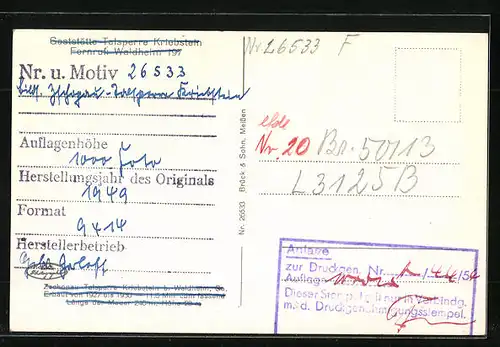 Gaststätte Talsperre Kriebstein
Fernruf: Waldheim 197
Nr. u. Motiv 26533
Zschopau-Talsperre Kriebstein
Auflagenhöhe
1000 Foto
Herstellungsjahr des Originals
1949
Format
9x14
Herstellerbetrieb
Zschopau-Talsperre Kriebstein b. Waldheim, Sa.
Erbaut von 1927 bis 1930
Länge der Mauer: 240 m, Höhe
Nr. 26533 Brück & Sohn, Meißen
Nr 26533 F
Nr. 20 Br. 50113
L3125B
Anlage
zur Druckgen. Nr.
Auflage
Dieser Stempel gilt nur in Verbindg.
m. d. Druckgenehmigungsstempel.